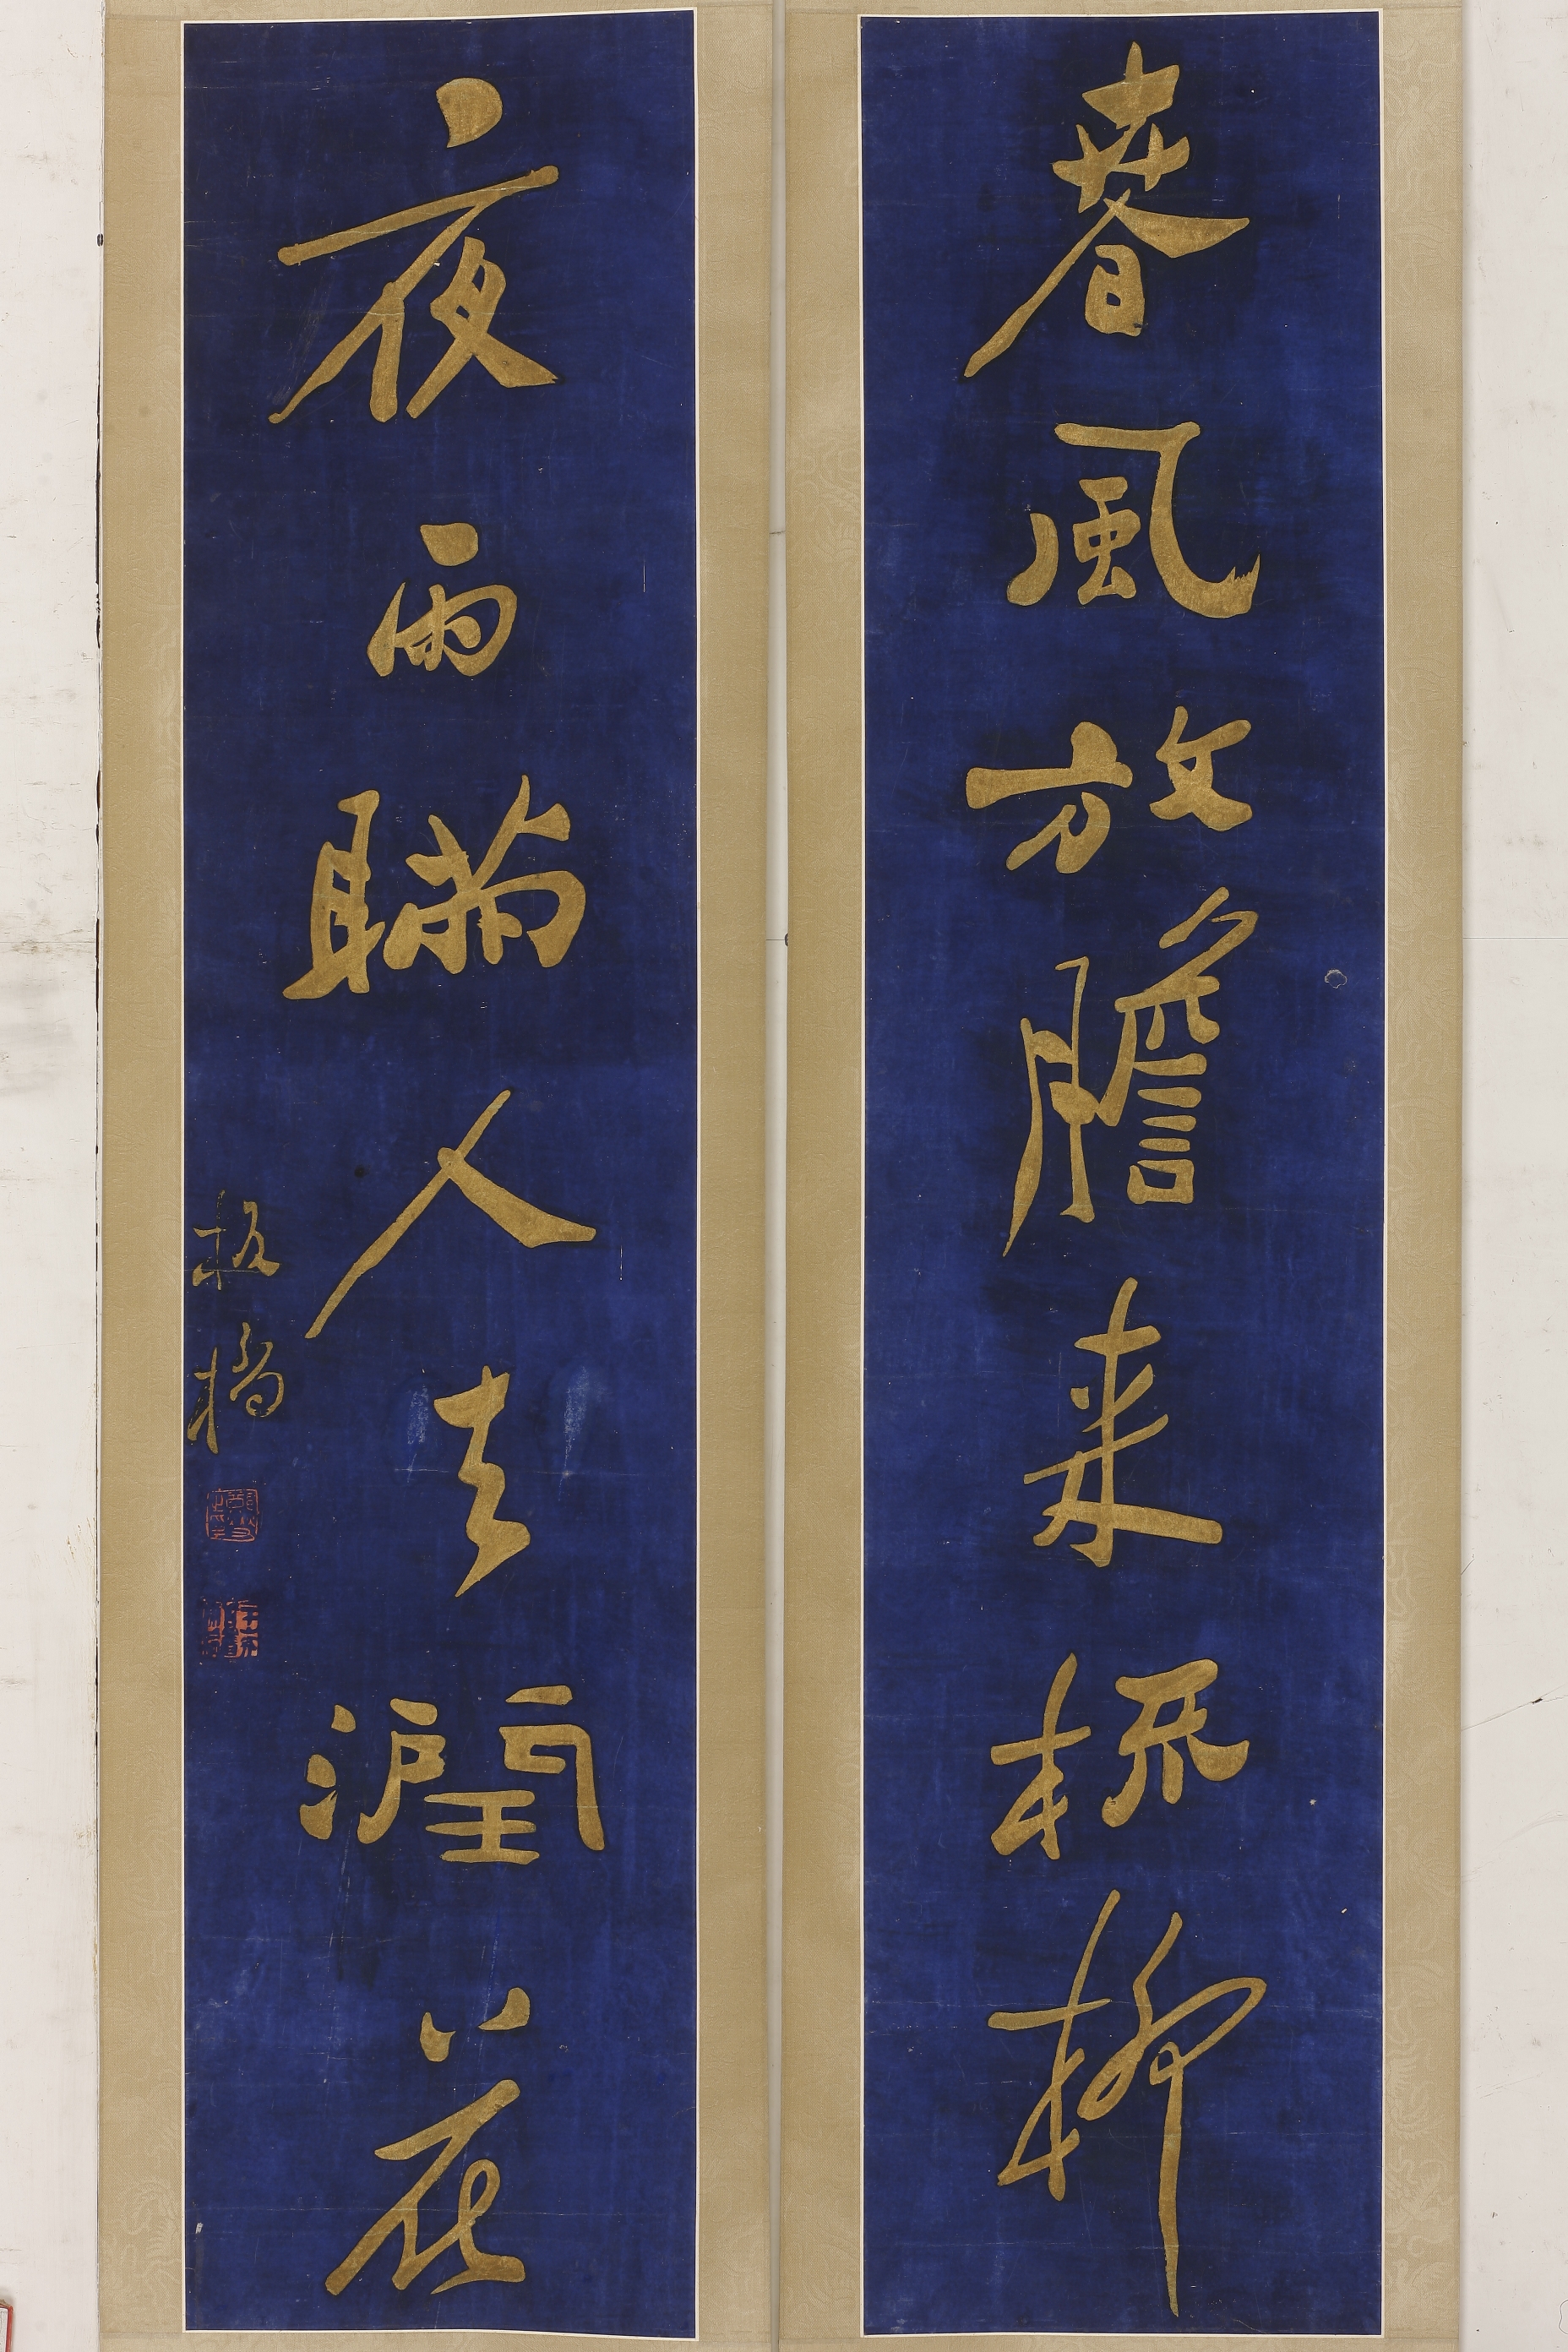 春風放膽来梳柳
夜雨瞞人去潤花
板橋